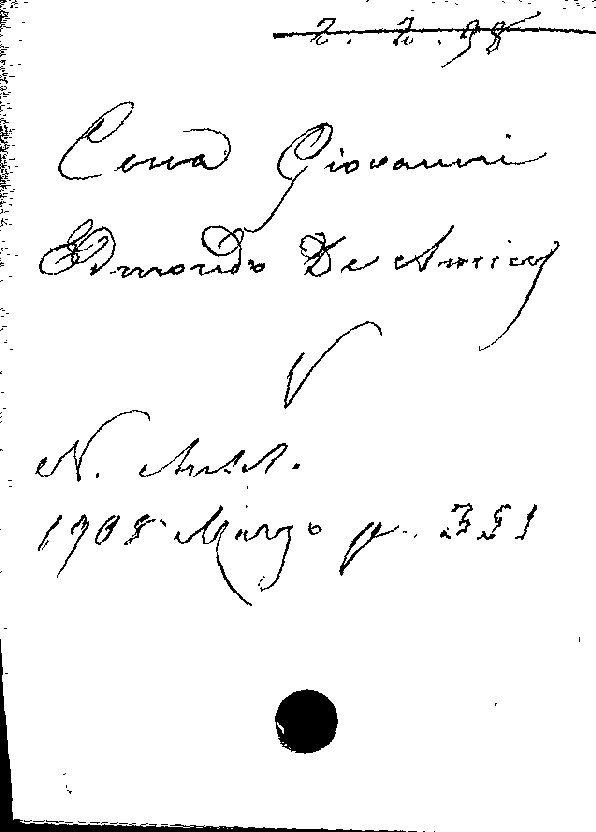 2. 2. 98
Cena Giovanni
Edmondo De Amicis
V
N. Ant.
1908 Marzo p. 351